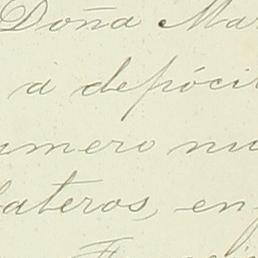 Doña Mar
à depóci
umero mi
lateros, en